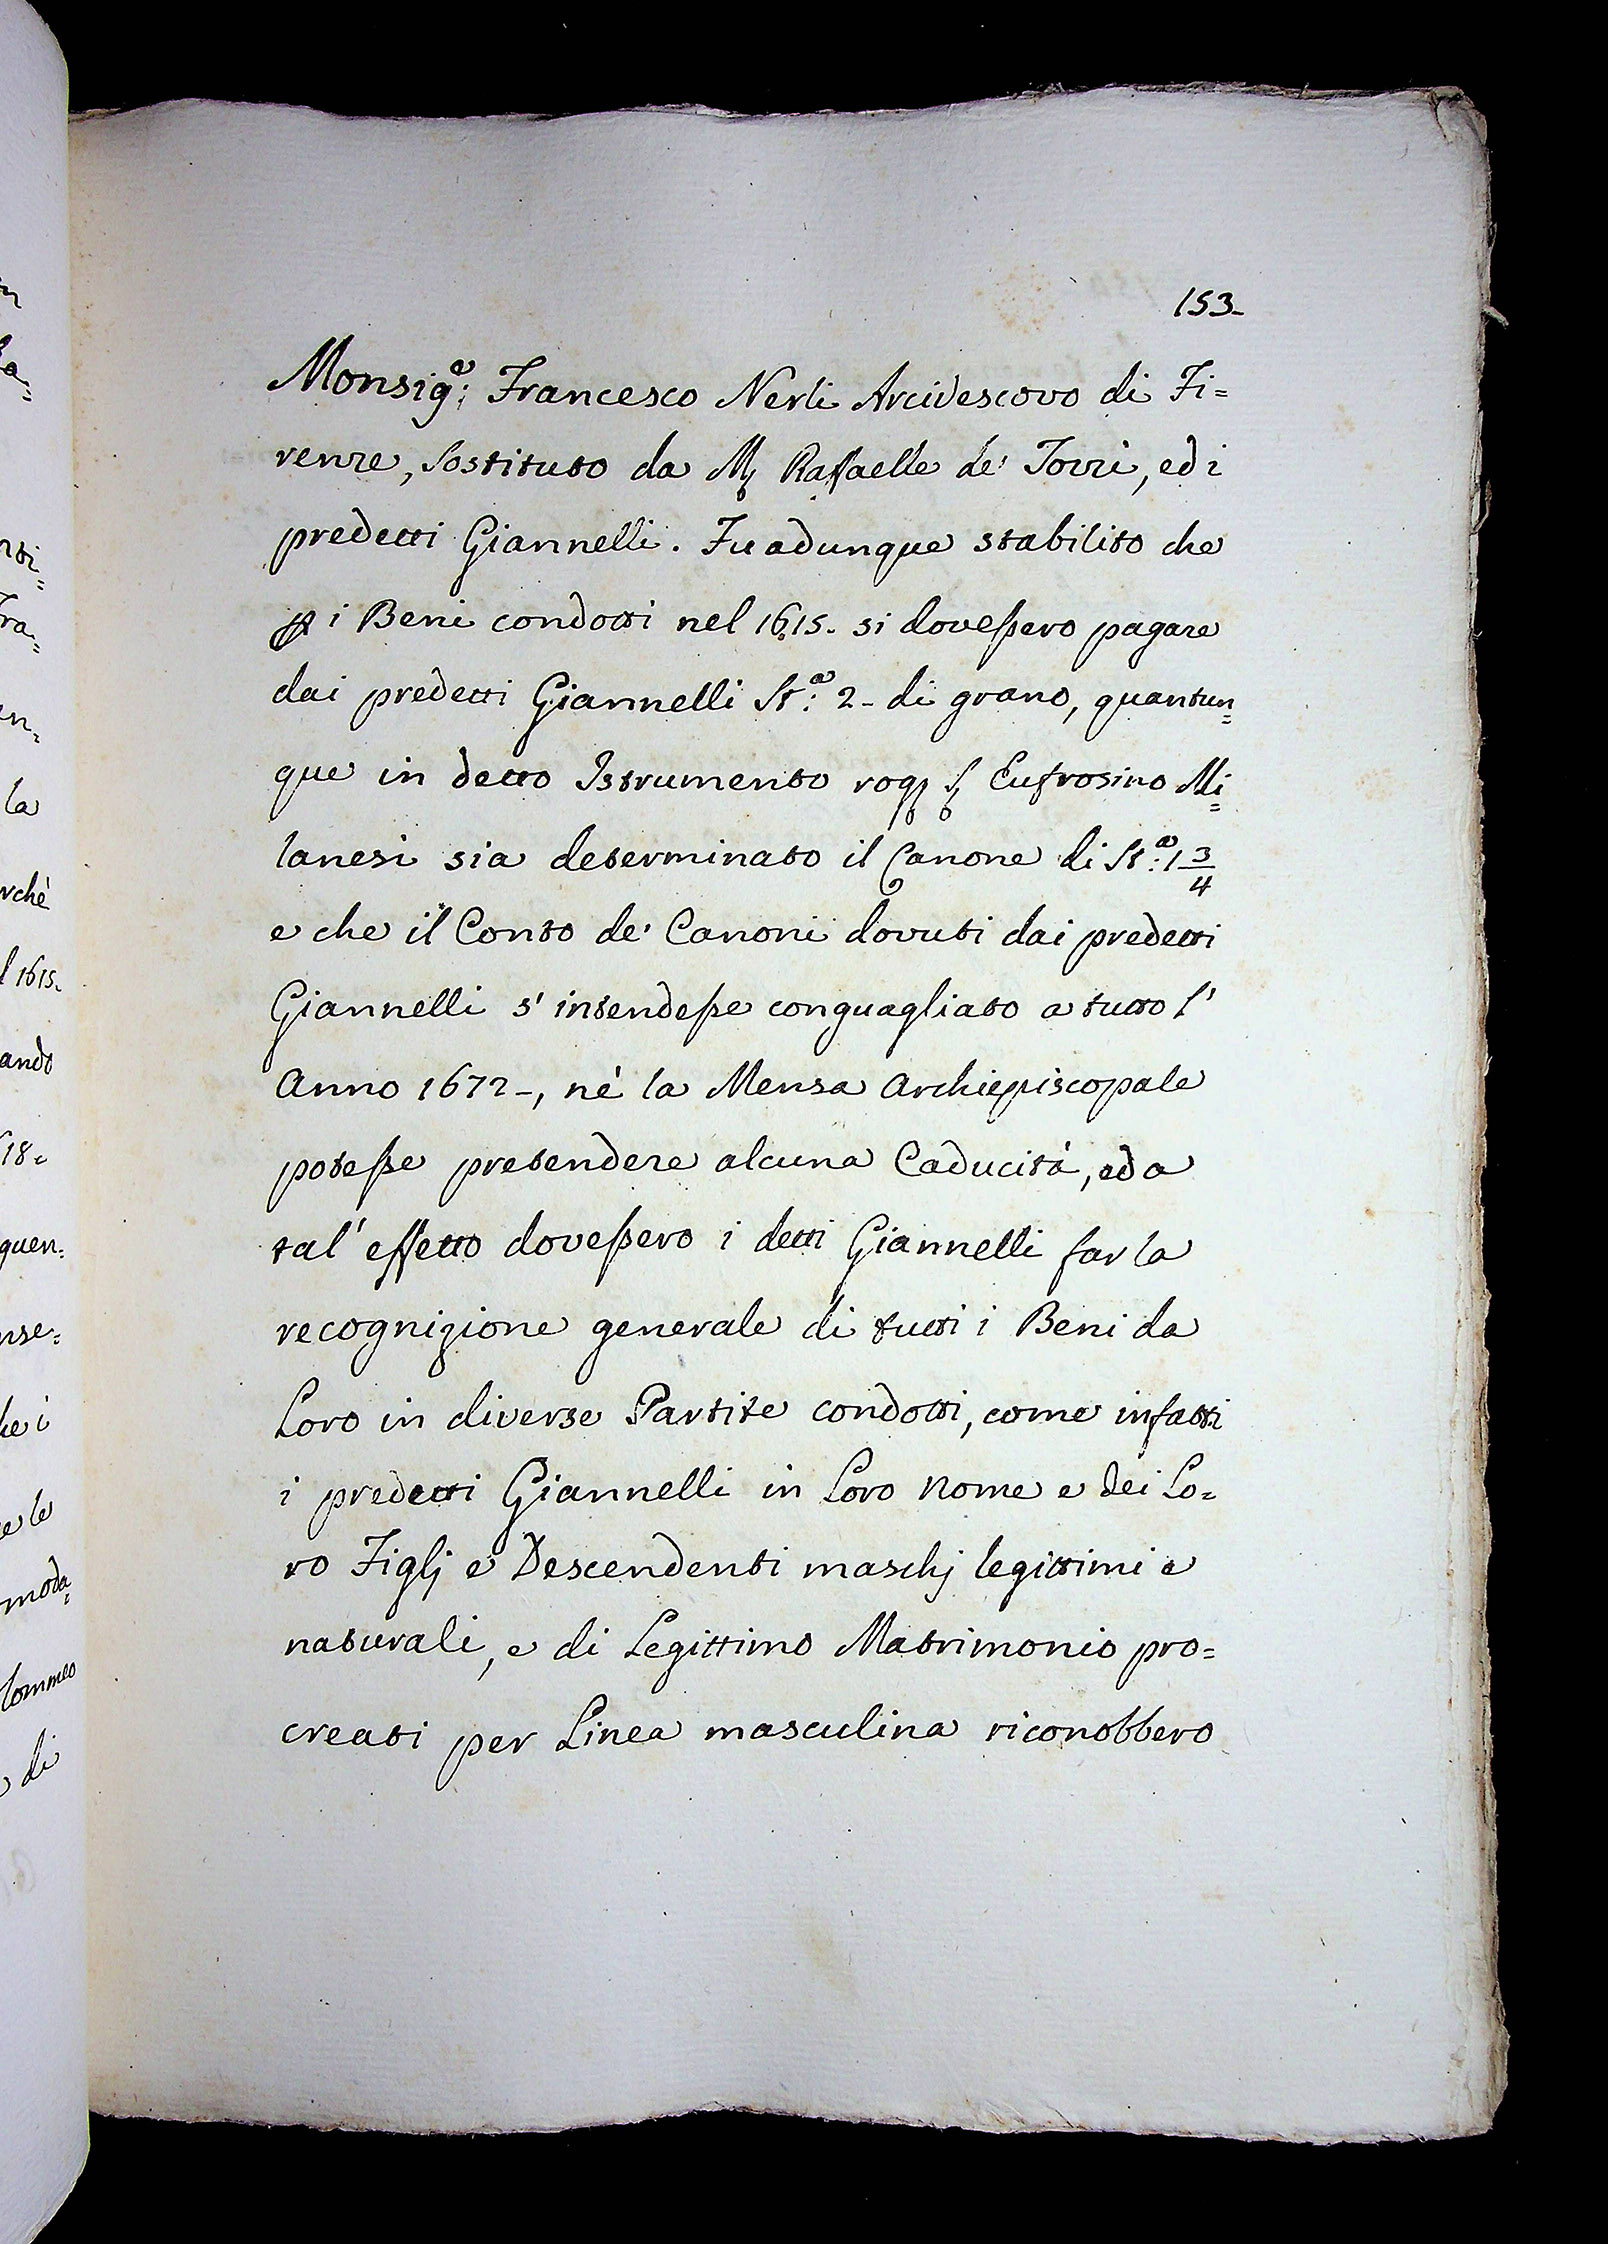 153.
Monsig.e: Francesco Nerli Arcivescovo di Fi=
renze, Sostituto da M. Raffaelle de' Torri, ed i
predetti Giannelli. Fu adunque stabilito che
p i Beni condotti nel 1615. si dovessero pagare
dai predetti Giannelli St.a: 2 - di grano, quantun=
que in detto Istrumento rog. S. Eufrosino Mi=
lanesi sia determinato il Canone di St.a: 1 3/4
e che il Conto de' Canoni dovuti dai predetti
Giannelli s' intendesse conguagliato a tutto l'
Anno 1672 -, nè la Mensa Archiepiscopale
potesse pretendere alcuna Caducità, ed a
tal' effetto dovessero i detti Giannelli far la
recognizione generale di tutti i Beni da
Loro in diverse Partite condotti, come infatti
i predetti Giannelli in Loro Nome e dei Lo=
ro Figlj e Descendenti maschj legittimi e
naturali, e di Legittimo Matrimonio pro=
creati per Linea masculina riconobbero